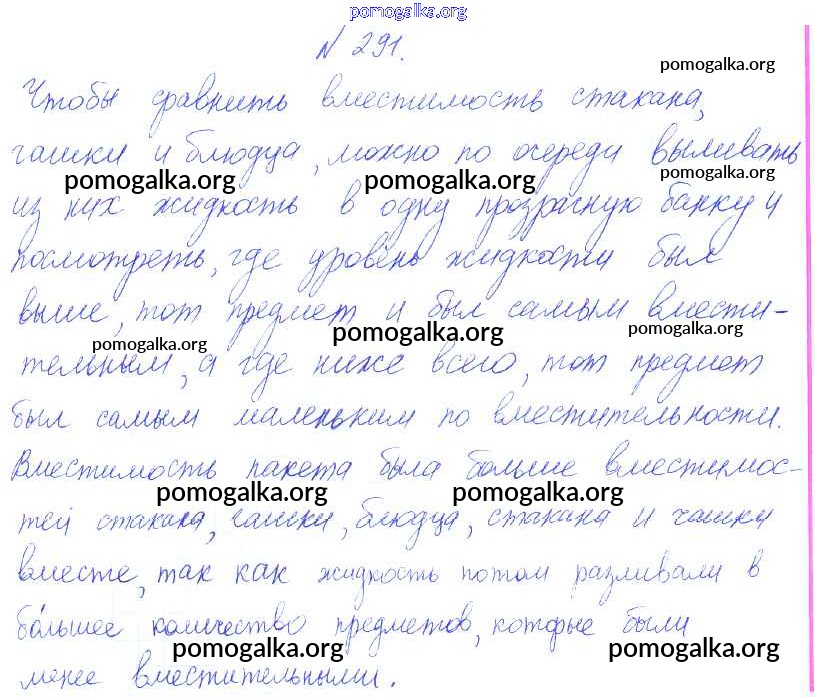 pomogalka.org
№ 291.
pomogalka.org
Чтобы сравнить вместимость стакана,
чашки и блюдца, можно по очереди выливать
pomogalka.org pomogalka.org pomogalka.org
из них жидкость в одну прозрачную банку и
посмотреть, где уровень жидкости был
выше, тот предмет и был самым вмести-
pomogalka.org pomogalka.org pomogalka.org
тельным, а где ниже всего, тот предмет
был самым маленьким по вместительности.
Вместимость пакета была больше вместимос-
pomogalka.org pomogalka.org
тей стакана, чашки, блюдца, стакана и чашки
вместе, так как жидкость потом разливали в
бо́льшее количество предметов, которые были
pomogalka.org pomogalka.org
менее вместительными.